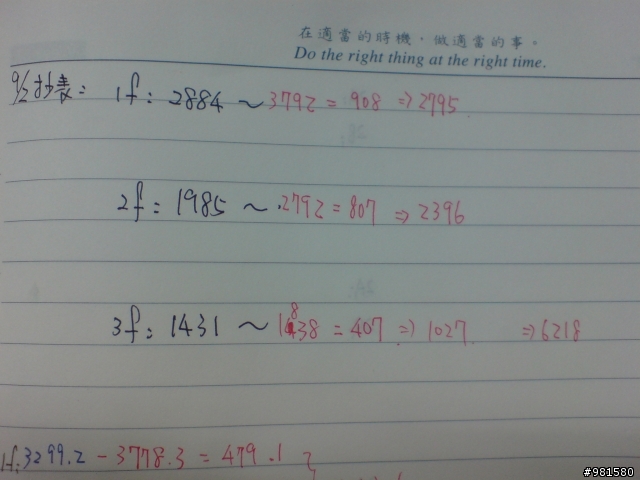 在適當的時機，做適當的事。
Do the right thing at the right time.
9/2抄表：1f：2884 ~ 3792 = 908 ⇒ 2795
2f：1985 ~ 2792 = 807 ⇒ 2396
3f：1431 ~ 1838 = 407 ⇒ 1027 ⇒ 6218
1f：3299.2 - 3778.3 = 479.1
#981580